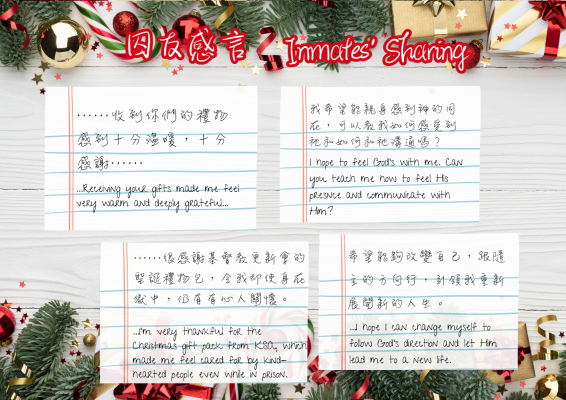 囚友感言 Inmates' Sharing
……收到你們的禮物
感到十分溫暖，十分
感謝……
...Receiving your gifts made me feel
very warm and deeply grateful...
我希望能親身感到神的同
在，可以教我如何感受到
祂和如何和祂溝通嗎？
I hope to feel God's with me. Can
you teach me how to feel His
presnce and communicate with
Him?
……很感謝基督教更新會的
聖誕禮物包，令我即使身在
獄中，仍有有心人關懷。
...I'm very thankful for the
Christmas gift pack from KSO, which
made me feel cared for by kind-
hearted people even while in prison.
希望能夠改變自己，跟隨
主的方向行，引領我重新
展開新的人生。
...I hope I can change myself to
follow God's direction and let Him
lead me to a new life.